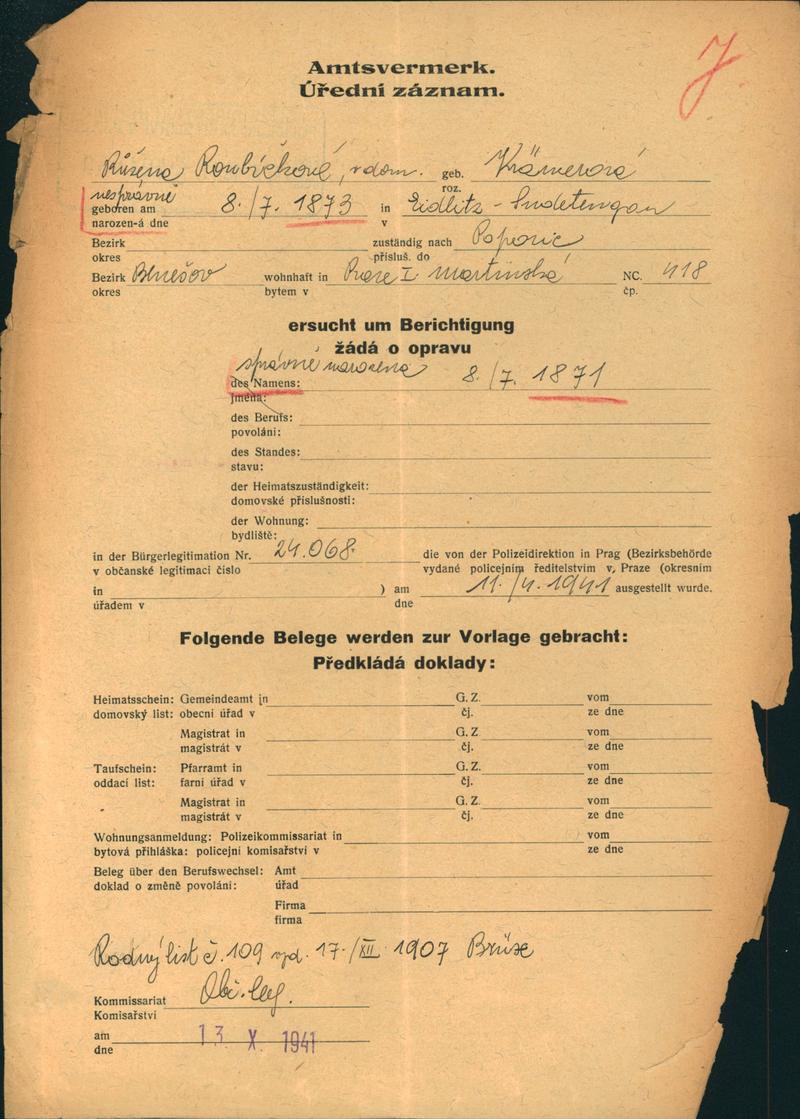 Amtsvermerk.
Úřední záznam.
J
Růžena Roubíčková, v dom. geb. Krämerová
roz.
nesprávně
geboren am 8./7. 1873 in Eidlitz - Sudetengau
narozen-á dne v
Bezirk zuständig nach Popovic
okres přísluš. do
Bezirk Benešov wohnhaft in Praze I Martinská NC. 418
okres bytem v čp.
ersucht um Berichtigung
žádá o opravu
správně narozena
des Namens: 8./7. 1871
jména:
des Berufs:
povolání:
des Standes:
stavu:
der Heimatszuständigkeit:
domovské příslušnosti:
der Wohnung:
bydliště:
in der Bürgerlegitimation Nr. 24.068. die von der Polizeidirektion in Prag (Bezirksbehörde
v občanské legitimaci číslo vydané policejním ředitelstvím v Praze (okresním
in ) am 11./4. 1941 ausgestellt wurde.
úřadem v dne
Folgende Belege werden zur Vorlage gebracht:
Předkládá doklady:
Heimatsschein: Gemeindeamt in G. Z. vom
domovský list: obecní úřad v čj. ze dne
Magistrat in G. Z. vom
magistrát v čj. ze dne
Taufschein: Pfarramt in G. Z. vom
oddací list: farní úřad v čj. ze dne
Magistrat in G. Z. vom
magistrát v čj. ze dne
Wohnungsanmeldung: Polizeikommissariat in vom
bytová přihláška: policejní komisařství v ze dne
Beleg über den Berufswechsel: Amt
doklad o změně povolání: úřad
Firma
firma
Rodný list č. 109 vyd. 17./XII 1907 Brüxe
Kommissariat Obč. leg.
Komisařství
am 13 X 1941
dne